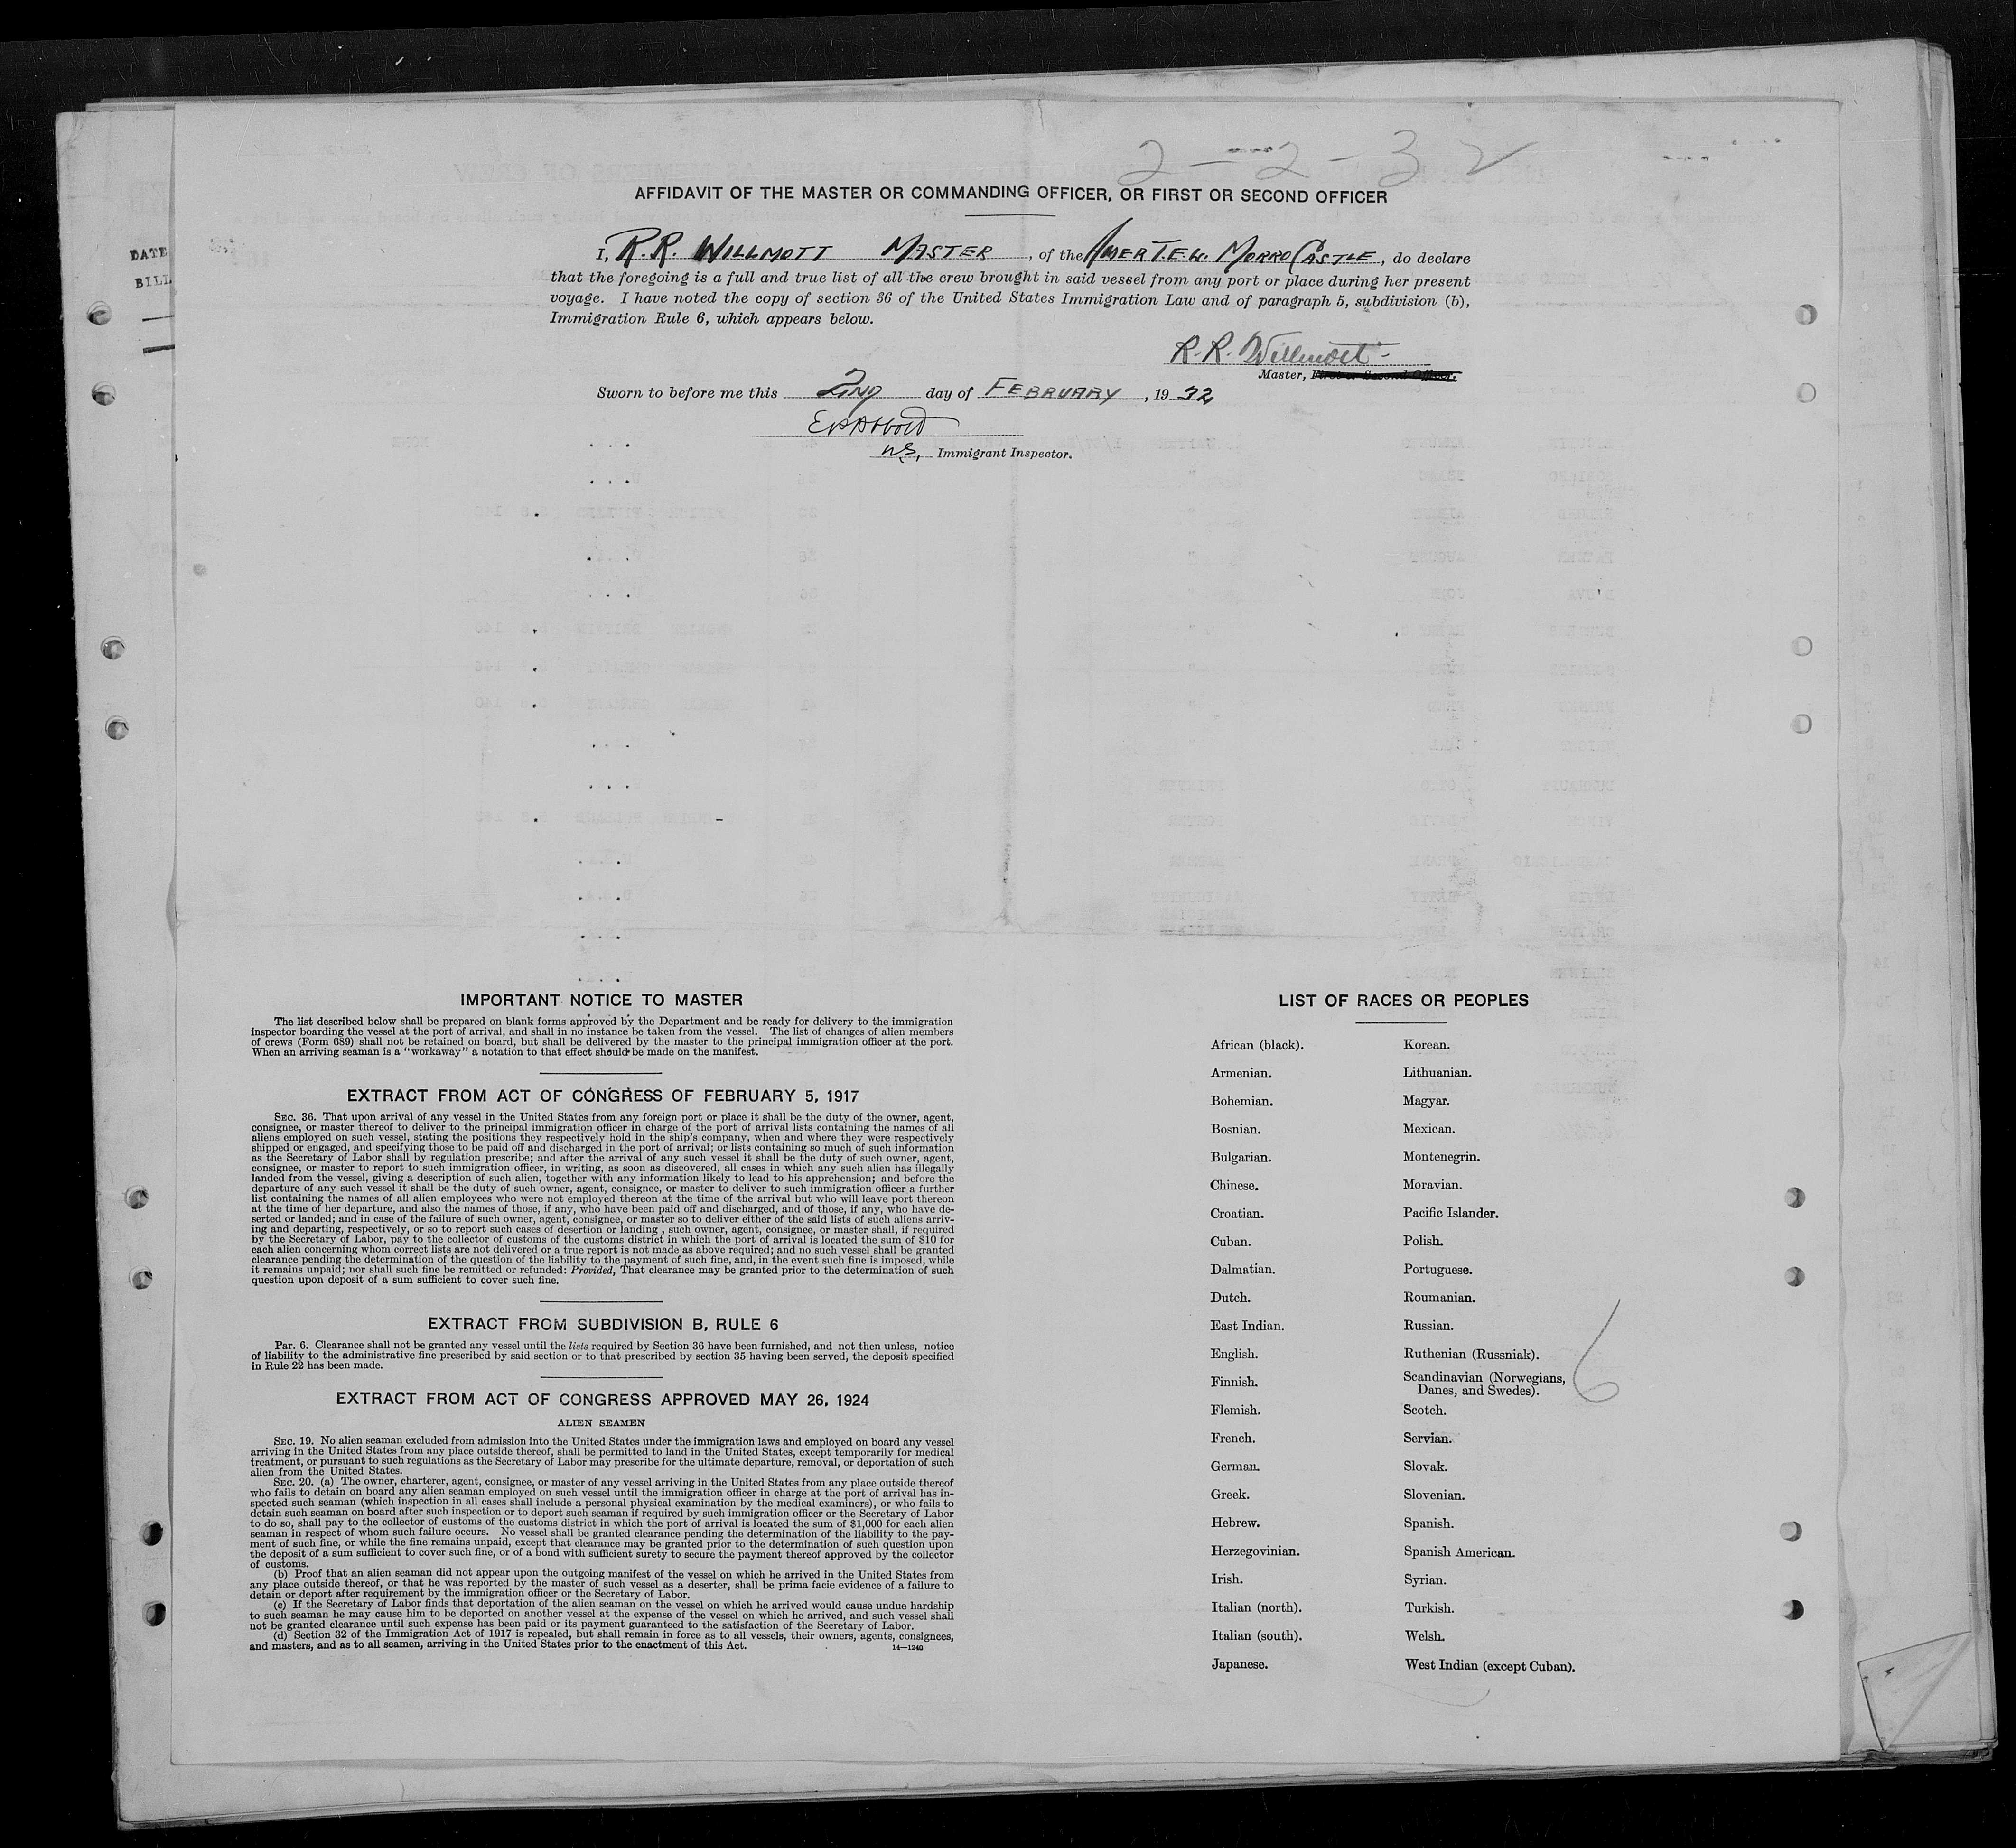 2-2-32
AFFIDAVIT OF THE MASTER OR COMMANDING OFFICER, OR FIRST OR SECOND OFFICER
DATE
BILL
I, R.R. WILLMOTT MASTER, of the AMER T.E.W. MORRO CASTLE, do declare
that the foregoing is a full and true list of all the crew brought in said vessel from any port or place during her present
voyage. I have noted the copy of section 36 of the United States Immigration Law and of paragraph 5, subdivision (b),
Immigration Rule 6, which appears below.
R.R. Willmott
Master, First or Second Officer.
Sworn to before me this 2ND day of FEBRUARY, 1932
Immigrant Inspector.
IMPORTANT NOTICE TO MASTER
The list described below shall be prepared on blank forms approved by the Department and be ready for delivery to the immigration
inspector boarding the vessel at the port of arrival, and shall in no instance be taken from the vessel. The list of changes of alien members
of crews (Form 689) shall not be retained on board, but shall be delivered by the master to the principal immigration officer at the port.
When an arriving seaman is a "workaway" a notation to that effect should be made on the manifest.
EXTRACT FROM ACT OF CONGRESS OF FEBRUARY 5, 1917
SEC. 36. That upon arrival of any vessel in the United States from any foreign port or place it shall be the duty of the owner, agent,
consignee, or master thereof to deliver to the principal immigration officer in charge of the port of arrival lists containing the names of all
aliens employed on such vessel, stating the positions they respectively hold in the ship's company, when and where they were respectively
shipped or engaged, and specifying those to be paid off and discharged in the port of arrival; or lists containing so much of such information
as the Secretary of Labor shall by regulation prescribe; and after the arrival of any such vessel it shall be the duty of such owner, agent,
consignee, or master to report to such immigration officer, in writing, as soon as discovered, all cases in which any such alien has illegally
landed from the vessel, giving a description of such alien, together with any information likely to lead to his apprehension; and before the
departure of any such vessel it shall be the duty of such owner, agent, consignee, or master to deliver to such immigration officer a further
list containing the names of all alien employees who were not employed thereon at the time of the arrival but who will leave port thereon
at the time of her departure, and also the names of those, if any, who have been paid off and discharged, and of those, if any, who have de-
serted or landed; and in case of the failure of such owner, agent, consignee, or master so to deliver either of the said lists of such aliens arriv-
ing and departing, respectively, or so to report such cases of desertion or landing , such owner, agent, consignee, or master shall, if required
by the Secretary of Labor, pay to the collector of customs of the customs district in which the port of arrival is located the sum of $10 for
each alien concerning whom correct lists are not delivered or a true report is not made as above required; and no such vessel shall be granted
clearance pending the determination of the question of the liability to the payment of such fine, and, in the event such fine is imposed, while
it remains unpaid; nor shall such fine be remitted or refunded: Provided, That clearance may be granted prior to the determination of such
question upon deposit of a sum sufficient to cover such fine.
EXTRACT FROM SUBDIVISION B, RULE 6
Par. 6. Clearance shall not be granted any vessel until the lists required by Section 36 have been furnished, and not then unless, notice
of liability to the administrative fine prescribed by said section or to that prescribed by section 35 having been served, the deposit specified
in Rule 22 has been made.
EXTRACT FROM ACT OF CONGRESS APPROVED MAY 26, 1924
ALIEN SEAMEN
SEC. 19. No alien seaman excluded from admission into the United States under the immigration laws and employed on board any vessel
arriving in the United States from any place outside thereof, shall be permitted to land in the United States, except temporarily for medical
treatment, or pursuant to such regulations as the Secretary of Labor may prescribe for the ultimate departure, removal, or deportation of such
alien from the United States.
SEC. 20. (a) The owner, charterer, agent, consignee, or master of any vessel arriving in the United States from any place outside thereof
who fails to detain on board any alien seaman employed on such vessel until the immigration officer in charge at the port of arrival has in-
spected such seaman (which inspection in all cases shall include a personal physical examination by the medical examiners), or who fails to
detain such seaman on board after such inspection or to deport such seaman if required by such immigration officer or the Secretary of Labor
to do so, shall pay to the collector of customs of the customs district in which the port of arrival is located the sum of $1,000 for each alien
seaman in respect of whom such failure occurs. No vessel shall be granted clearance pending the determination of the liability to the pay-
ment of such fine, or while the fine remains unpaid, except that clearance may be granted prior to the determination of such question upon
the deposit of a sum sufficient to cover such fine, or of a bond with sufficient surety to secure the payment thereof approved by the collector
of customs.
(b) Proof that an alien seaman did not appear upon the outgoing manifest of the vessel on which he arrived in the United States from
any place outside thereof, or that he was reported by the master of such vessel as a deserter, shall be prima facie evidence of a failure to
detain or deport after requirement by the immigration officer or the Secretary of Labor.
(c) If the Secretary of Labor finds that deportation of the alien seaman on the vessel on which he arrived would cause undue hardship
to such seaman he may cause him to be deported on another vessel at the expense of the vessel on which he arrived, and such vessel shall
not be granted clearance until such expense has been paid or its payment guaranteed to the satisfaction of the Secretary of Labor.
(d) Section 32 of the Immigration Act of 1917 is repealed, but shall remain in force as to all vessels, their owners, agents, consignees,
and masters, and as to all seamen, arriving in the United States prior to the enactment of this Act.
14—1240
LIST OF RACES OR PEOPLES
African (black). Korean.
Armenian. Lithuanian.
Bohemian. Magyar.
Bosnian. Mexican.
Bulgarian. Montenegrin.
Chinese. Moravian.
Croatian. Pacific Islander.
Cuban. Polish.
Dalmatian. Portuguese.
Dutch. Roumanian.
East Indian. Russian.
English. Ruthenian (Russniak).
Finnish. Scandinavian (Norwegians,
Danes, and Swedes).
6
Flemish. Scotch.
French. Servian.
German. Slovak.
Greek. Slovenian.
Hebrew. Spanish.
Herzegovinian. Spanish American.
Irish. Syrian.
Italian (north). Turkish.
Italian (south). Welsh.
Japanese. West Indian (except Cuban).